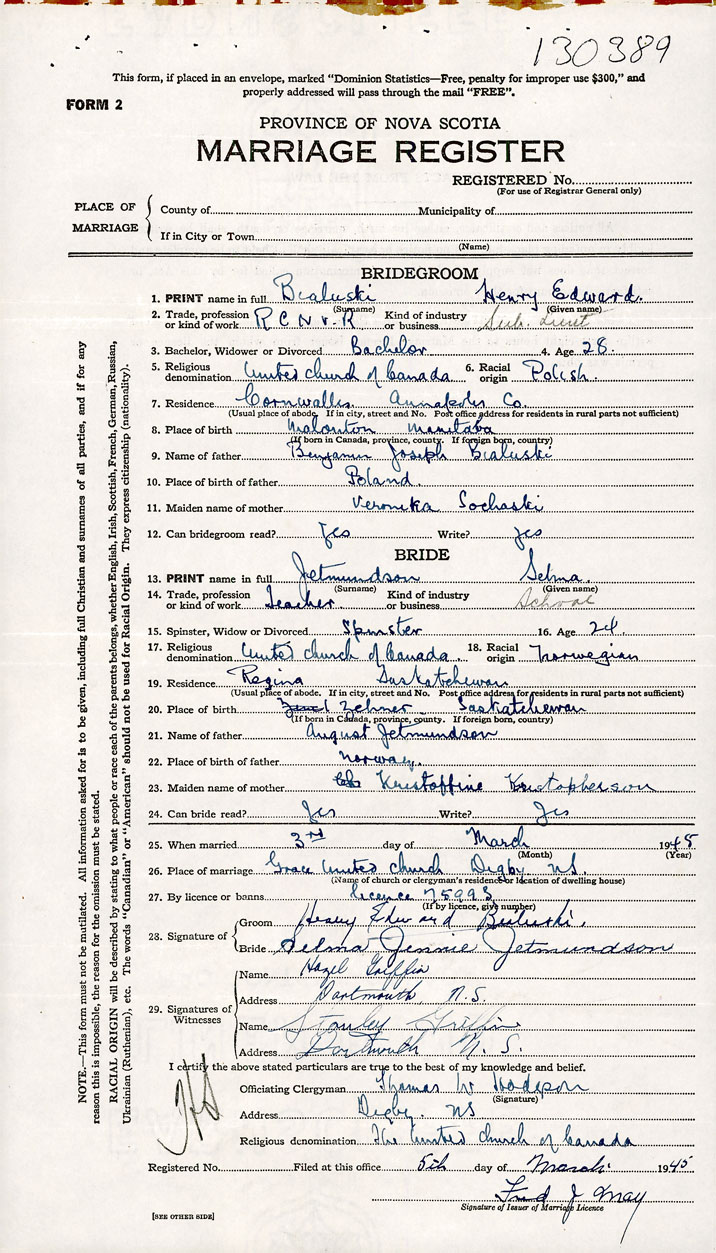 130389
This form, if placed in an envelope, marked "Dominion Statistics—Free, penalty for improper use $300," and
properly addressed will pass through the mail "FREE".
FORM 2
PROVINCE OF NOVA SCOTIA
MARRIAGE REGISTER
REGISTERED No.
(For use of Registrar General only)
PLACE OF MARRIAGE
County of Municipality of
If in City or Town
(Name)
BRIDEGROOM
1. PRINT name in full Bialuski Henry Edward.
(Surname) (Given name)
2. Trade, profession or kind of work R C N V. R Kind of industry or business Sub. Lieut
3. Bachelor, Widower or Divorced Bachelor 4. Age 28.
5. Religious denomination United church of Canada 6. Racial origin Polish.
7. Residence Cornwallis Annapolis Co.
(Usual place of abode. If in city, street and No. Post office address for residents in rural parts not sufficient)
8. Place of birth Manitoba
(If born in Canada, province, county. If foreign born, country)
9. Name of father Benjamin Joseph Bialuski
10. Place of birth of father Poland.
11. Maiden name of mother Veronika Sochaski
12. Can bridegroom read? Yes Write? yes
BRIDE
13. PRINT name in full Jetmundson Selma.
(Surname) (Given name)
14. Trade, profession or kind of work Teacher Kind of industry or business School
15. Spinster, Widow or Divorced Spinster 16. Age 24.
17. Religious denomination United church of Canada. 18. Racial origin Norwegian
19. Residence Regina Saskatchewan
(Usual place of abode. If in city, street and No. Post office address for residents in rural parts not sufficient)
20. Place of birth Zehner Saskatchewan
(If born in Canada, province, county. If foreign born, country)
21. Name of father August Jetmundson
22. Place of birth of father Norway.
23. Maiden name of mother Kristoffine Kristopherson
24. Can bride read? Yes Write? Yes
25. When married 3rd day of March 1945
(Month) (Year)
26. Place of marriage Grace United church Digby N.S.
(Name of church or clergyman's residence or location of dwelling house)
27. By licence or banns licence 75993
(If by licence, give number)
28. Signature of
Groom Henry Edward Bialuski.
Bride Selma Jennie Jetmundson
29. Signatures of Witnesses
Name Hazel Griffin
Address Dartmouth, N.S.
Name Stanley Griffin
Address Dartmouth N.S.
I certify the above stated particulars are true to the best of my knowledge and belief.
Officiating Clergyman Thomas W Hodgson
(Signature)
Address Digby. NS
Religious denomination The United church of Canada
Registered No. Filed at this office 5th day of March 1945
Fred J May
Signature of Issuer of Marriage Licence
[SEE OTHER SIDE]
NOTE.—This form must not be mutilated. All information asked for is to be given, including full Christian and surnames of all parties, and if for any
reason this is impossible, the reason for the omission must be stated.
RACIAL ORIGIN will be described by stating to what people or race each of the parents belongs, whether English, Irish, Scottish, French, German, Russian,
Ukrainian (Ruthenian), etc. The words "Canadian" or "American" should not be used for Racial Origin. They express citizenship (nationality).